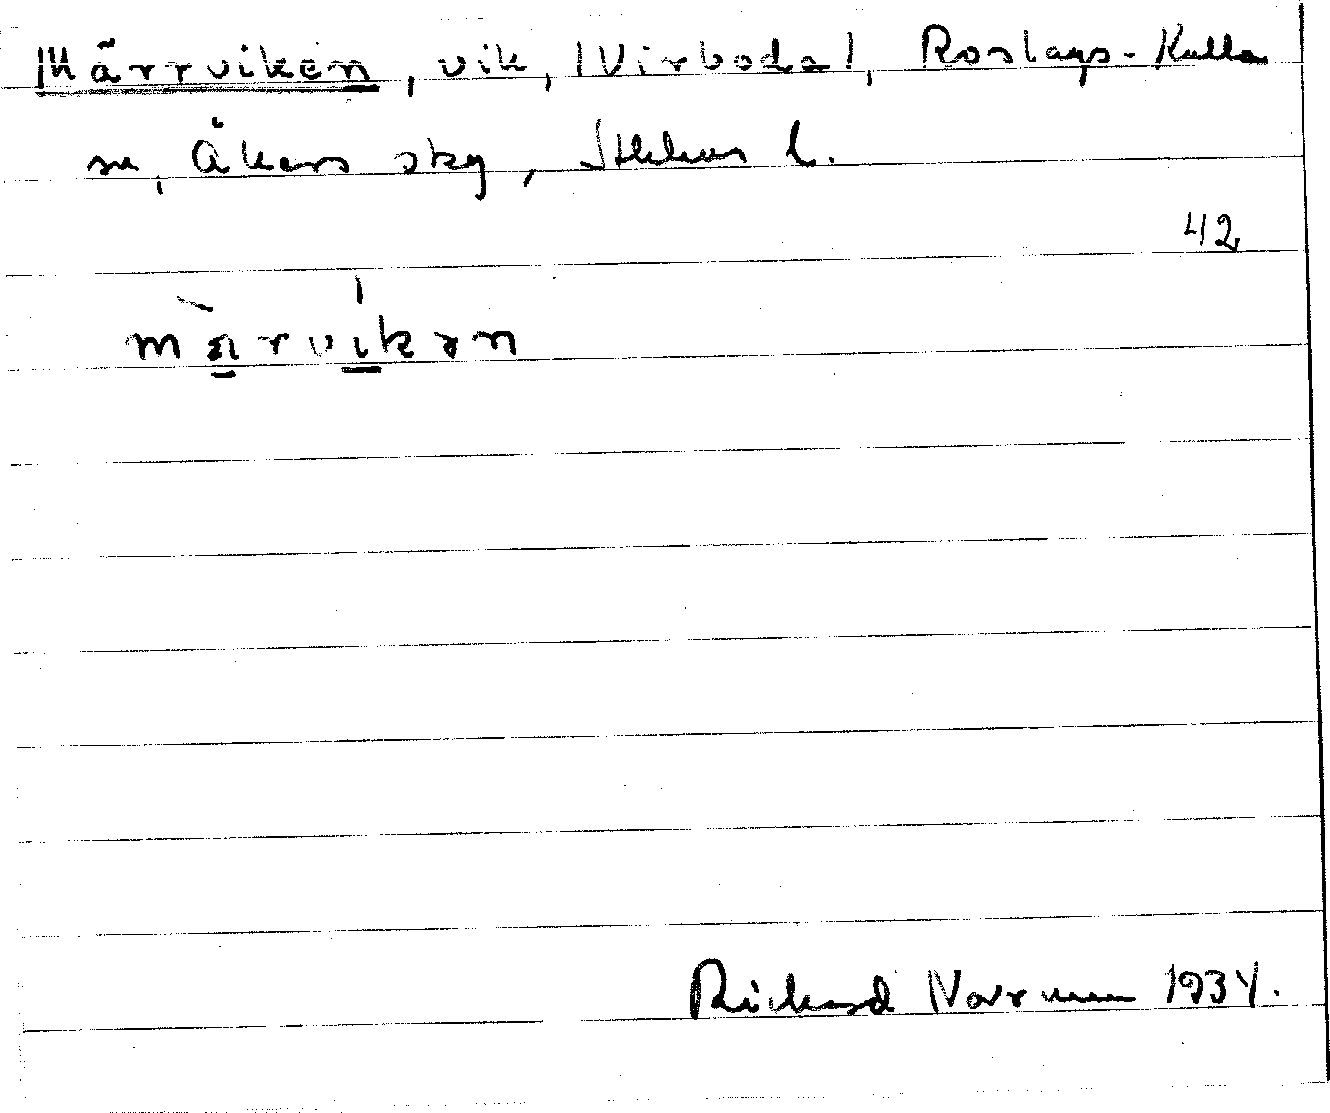 Märrviken, vik, (Virboda), Roslags-Kulla
sn, Åkers skg, Sthlms l.
42
märvikən
Richard Norrman 1934.